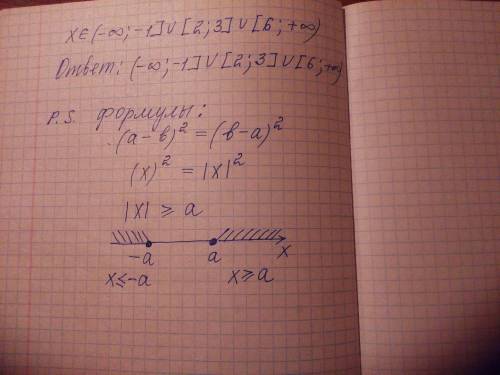 x ∈ (-∞; -1] ∪ [2; 3] ∪ [6; +∞)
Ответ: (-∞; -1] ∪ [2; 3] ∪ [6; +∞)
P.S. формулы:
(a - в)² = (в - a)²
(x)² = |x|²
|x| ⩾ a
-a a x
x ⩽ -a x ⩾ a